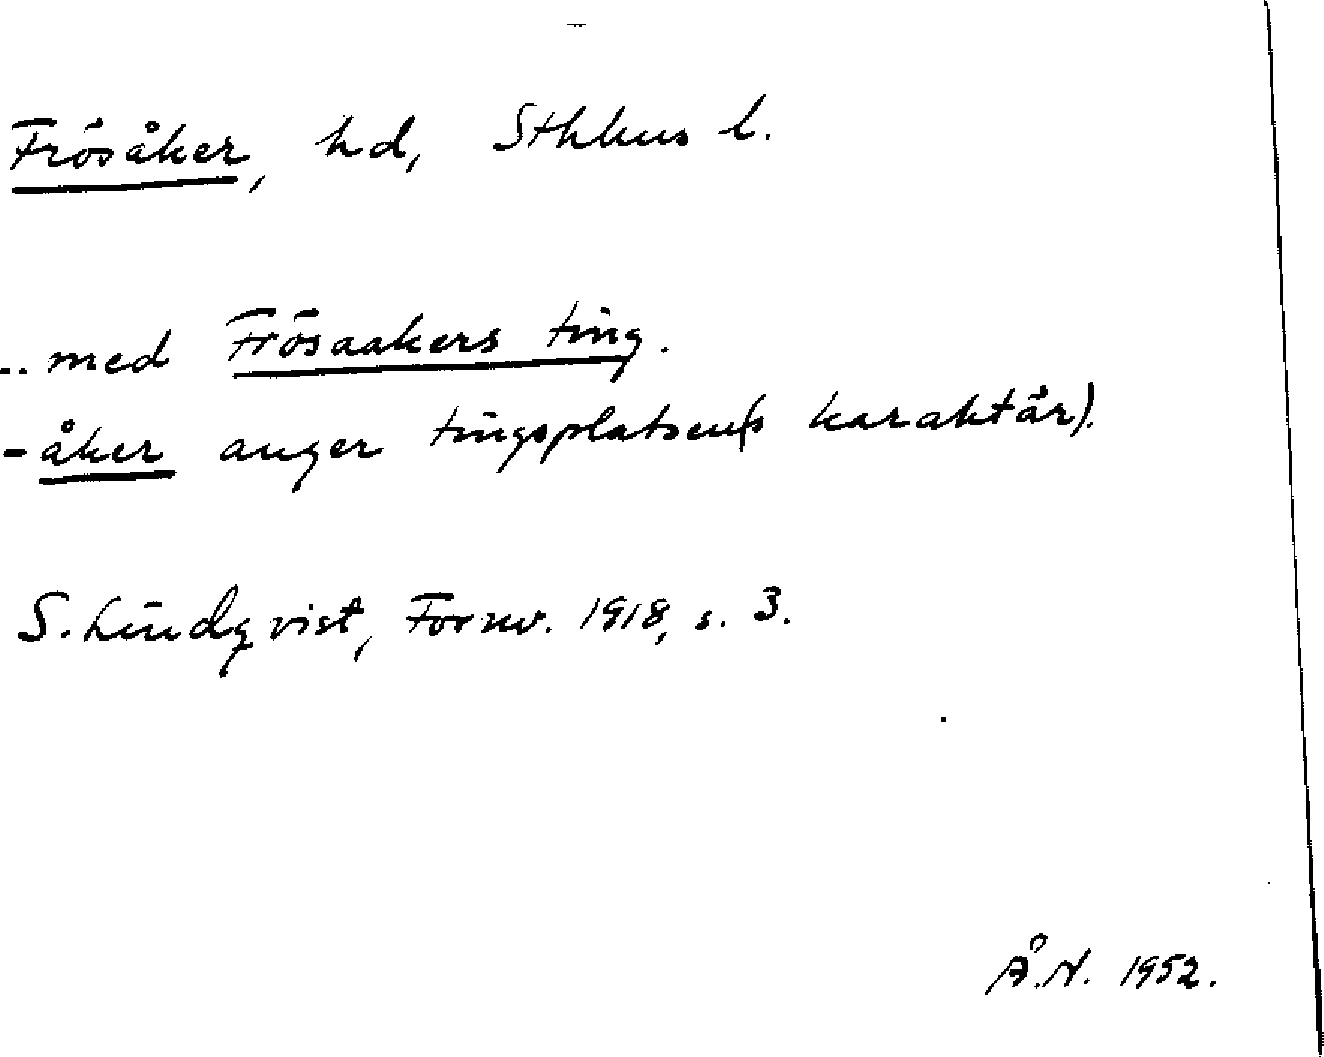 Frösåker, hd, Sthlms l.
.. med Frösaakers ting.
-åker anger tingsplatsen(s karaktär).
S. Lindqvist, Fornv. 1918, s. 3.
Å.N. 1952.